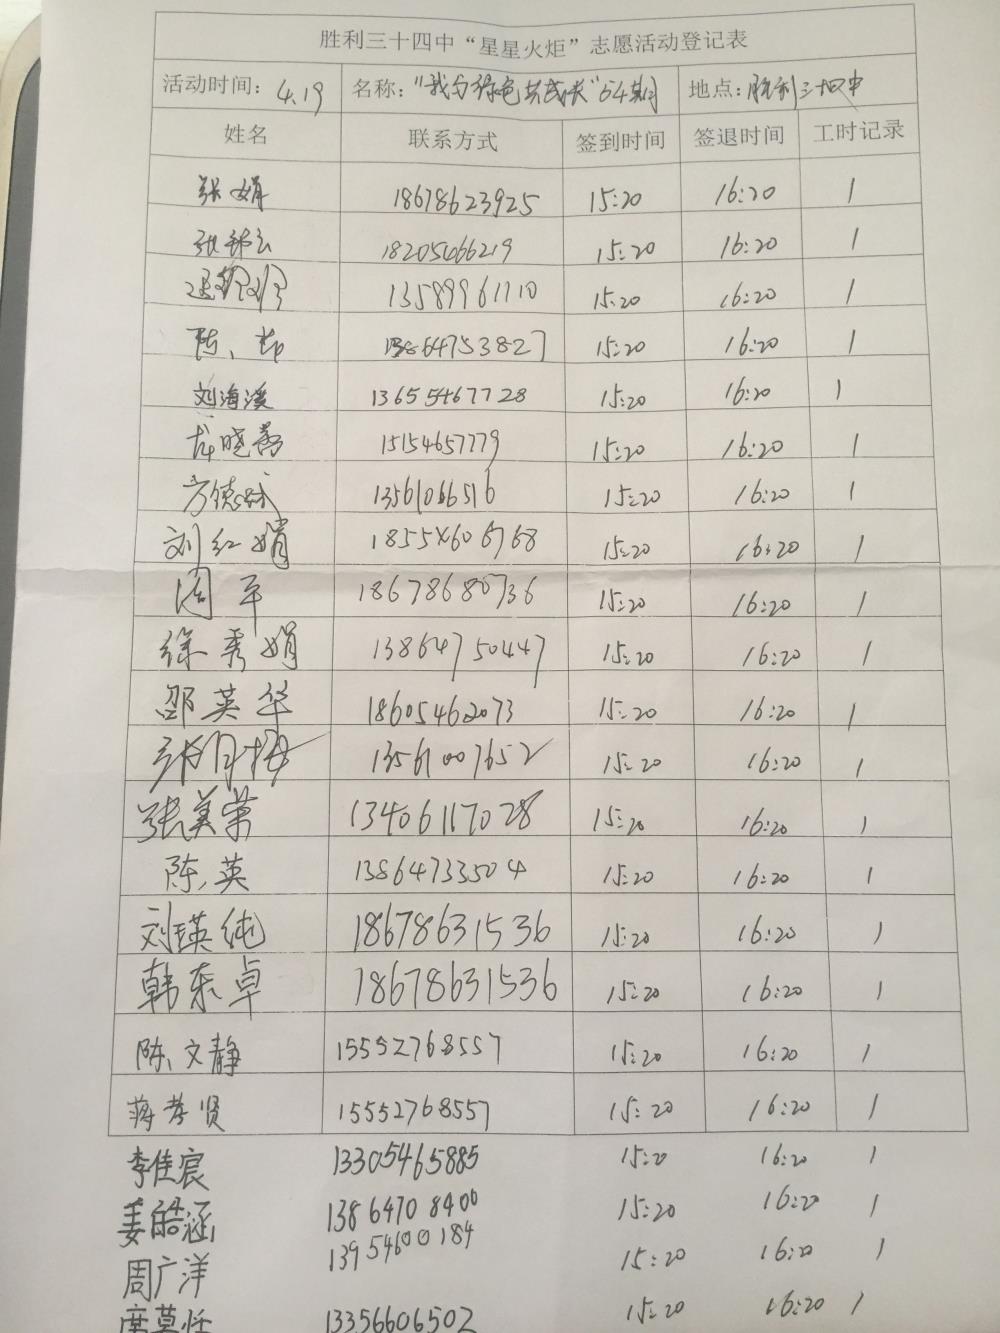 胜利三十四中“星星火炬”志愿活动登记表
活动时间：4.19 名称：“我与绿色共成长”64期 地点：胜利三十四中
姓名 联系方式 签到时间 签退时间 工时记录
张娟 18678623925 15:20 16:20 1
18205466219 15:20 16:20 1
13589961110 15:20 16:20 1
陈 13864753827 15:20 16:20 1
刘海溪 13655467728 15:20 16:20 1
15154657779 15:20 16:20 1
方德 13561066516 15:20 16:20 1
刘红娟 15:20 16:20 1
周平 18678680736 15:20 16:20 1
徐秀娟 13864750447 15:20 16:20 1
邵英华 18605462073 15:20 16:20 1
张月梅 13561007652 15:20 16:20 1
张美荣 13406117028 15:20 16:20 1
陈英 13864733504 15:20 16:20 1
刘瑛纯 18678631536 15:20 16:20 1
韩东卓 18678631536 15:20 16:20 1
陈文静 15552768557 15:20 16:20 1
蒋孝贤 15552768557 15:20 16:20 1
李佳宸 13305465885 15:20 16:20 1
姜皓涵 13864708400 15:20 16:20 1
周广洋 13954600184 15:20 16:20 1
席莫恁 13356606502 15:20 16:20 1